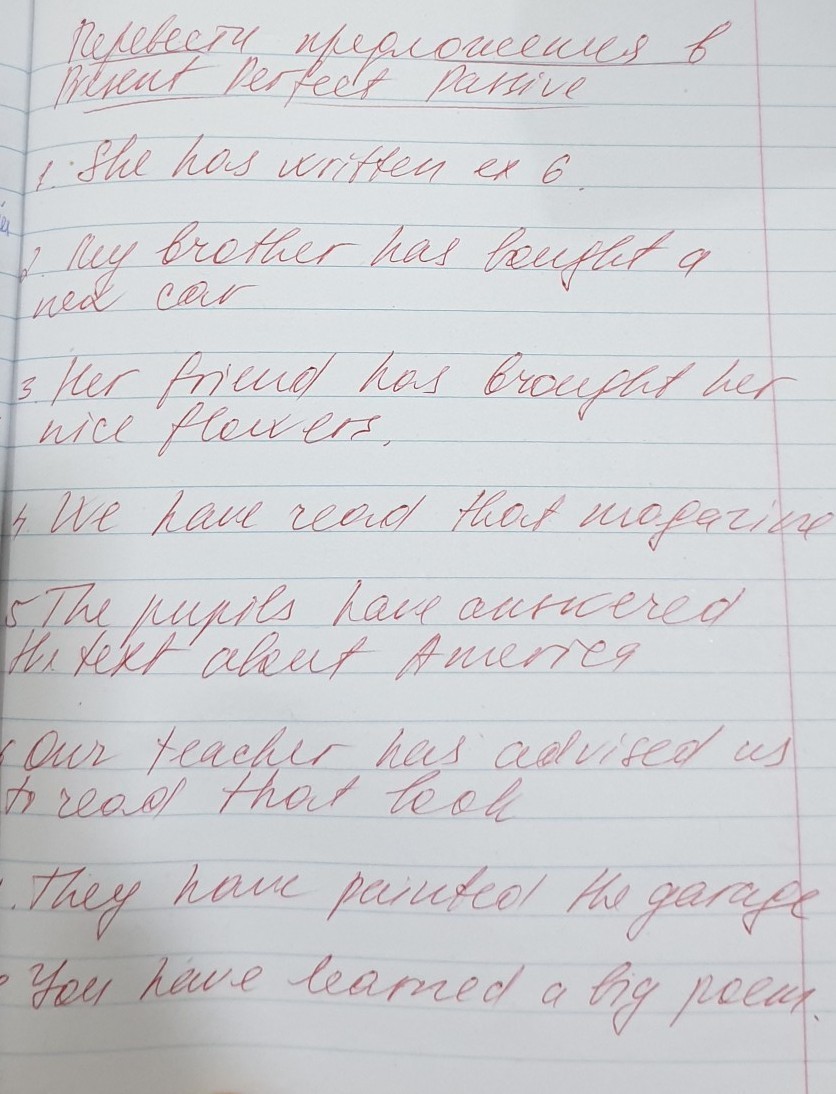 Перевести предложения в
Present Perfect Passive
1. She has written ex 6.
2. My brother has bought a
new car
3. Her friend has brought her
nice flowers.
4. We have read that magazine
5 The pupils have answered
the text about America
6 Our teacher has advised us
to read that book
. They have painted the garage
You have learned a big poem.